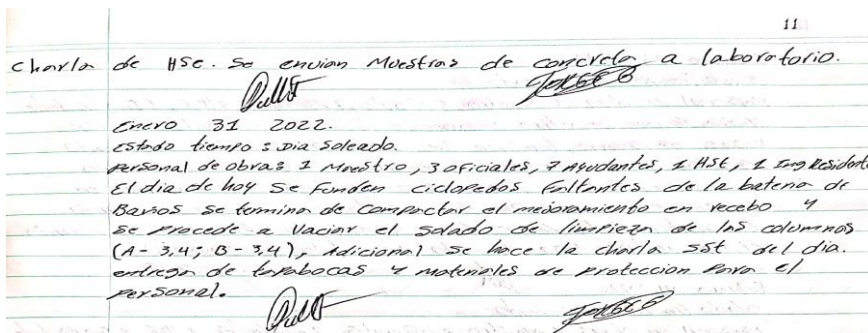 11
Charla de HSE. Se envian Muestras de concreto a laboratorio.
JORGE G
Enero 31 2022.
Estado tiempo : Dia Soleado.
Personal de obra: 1 Maestro, 3 oficiales, 7 Ayudantes, 1 HSE, 1 Ing Residente
El dia de hoy Se Funden ciclopedos Faltantes de la bateria de
Baños se termina de Compactar el mejoramiento en recebo y
se Procede a Vaciar el Solado de limpieza de las columnas
(A-3,4; B-3,4), Adicional se hace la charla SST del dia.
entrega de tapabocas y materiales de proteccion para el
Personal.
JORGE G